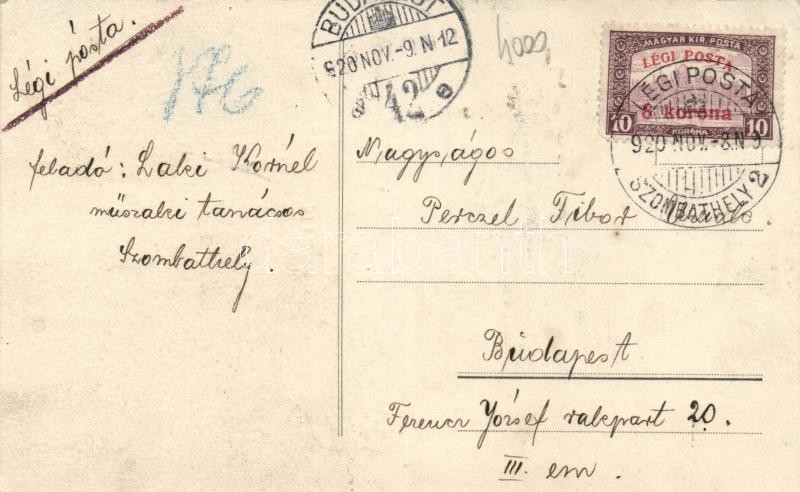 Légi pósta.
176
BUDAPEST
920 NOV.-9.N.12
42
4000
MAGYAR KIR. POSTA
LÉGI POSTA
8 korona
10 10
KORONA
LÉGI POSTA
920 NOV.-8.N 9
SZOMBATHELY 2
feladó: Laki Kornél
műszaki tanácsos
Szombathely.
Nagyságos
Perczel Tibor
Budapest
Ferencz József rakpart 20.
III. em.
darabanth